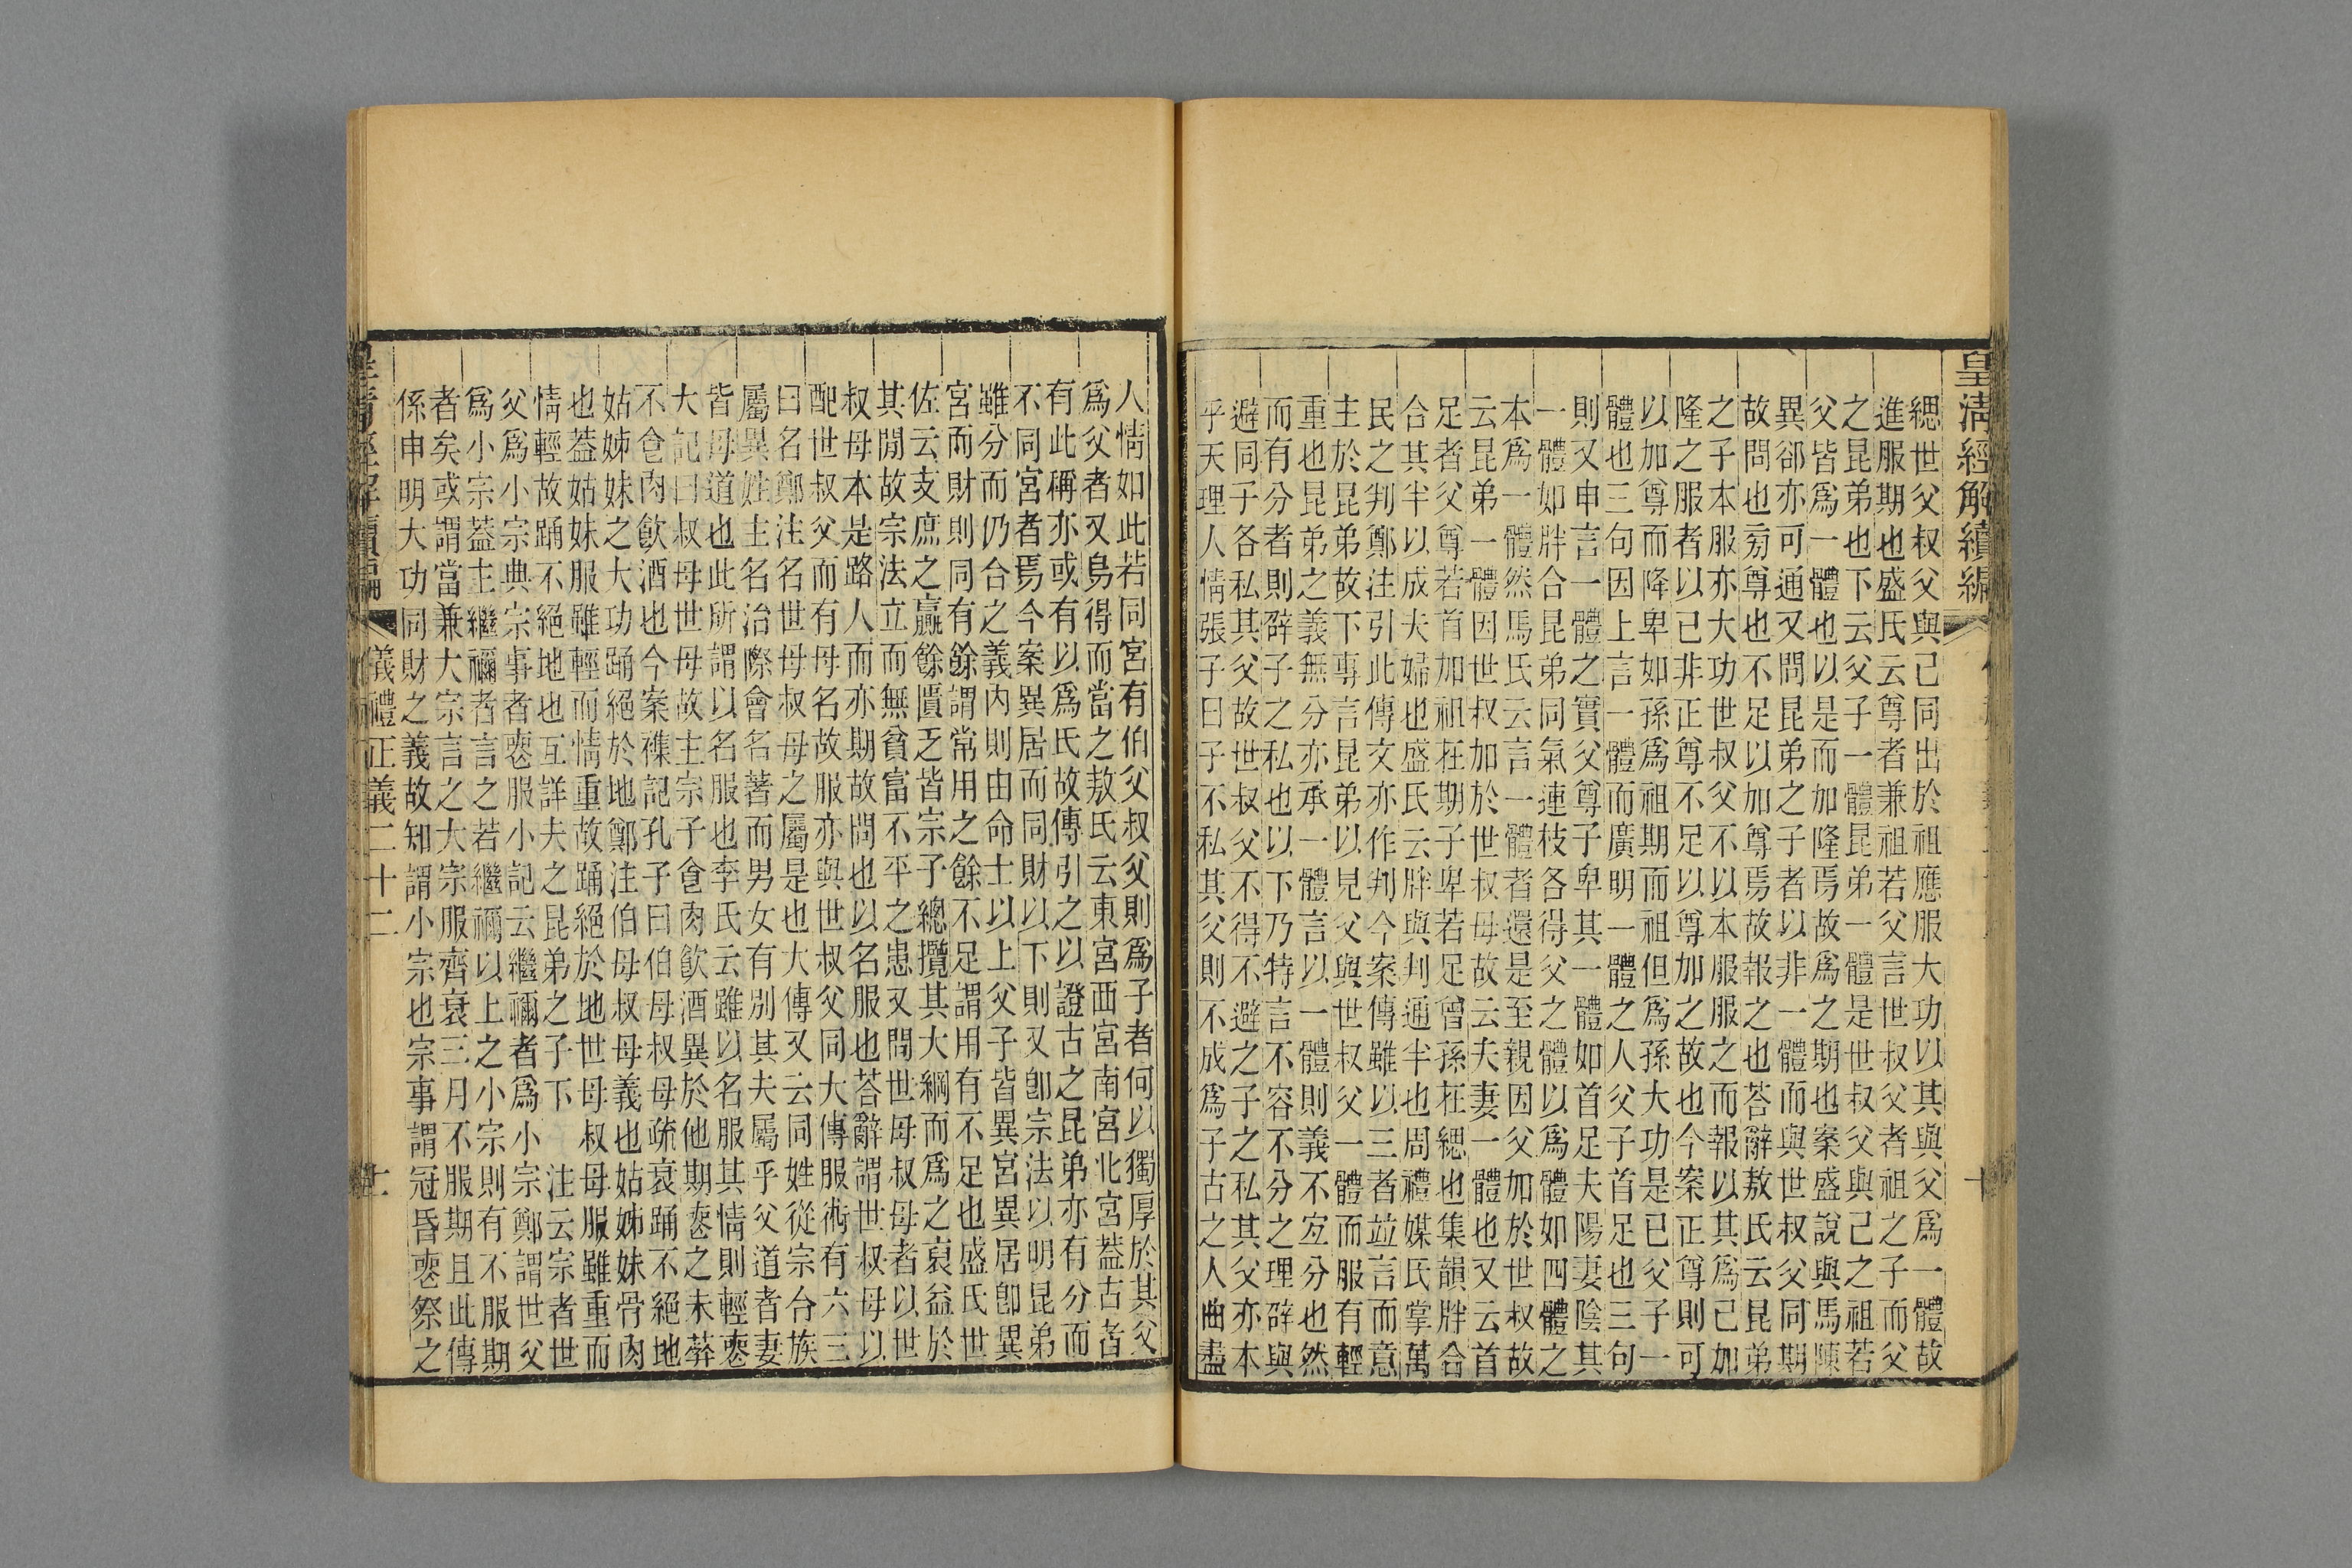 皇淸經解續編
緦世父叔父與己同出於祖應服大功以其與父爲一體故
進服期也盛氏云尊者兼祖若父言世叔父者祖之子而父
之昆弟也下云父子一體昆弟一體是世叔父與己之祖若
父皆爲一體也以是而加隆焉故爲之期也案盛說與馬陳
異郤亦可通又問昆弟之子者以非一體而與世叔父同期
故問也㫄尊也不足以加尊焉故報之也荅辭敖氏云昆弟
之子本服亦大功世叔父不以本服服之而報以其爲己加
隆之服者以己非正尊不足以尊加之故也今案正尊則可
以加尊而降卑如孫爲祖期而祖但爲孫大功是已父子一
體也三句因上言一體而廣明一體之人父子首足也三句
則又申言一體之實父尊子卑其一體如首足夫陽妻陰其
一體如牉合昆弟同氣連枝各得父之體以爲體如四體之
本爲一體然馬氏云言一體者還是至親因父加於世叔故
云昆弟一體因世叔加於世叔母故云夫妻一體也又云首
足者父尊若首加祖在期子卑若足曾孫在緦也集韻牉合
合其半以成夫婦也盛氏云牉與判通半也周禮媒氏掌萬
民之判鄭注引此傳文亦作判今案傳雖以三者竝言而意
主於昆弟故下專言昆弟以見父與世叔父一體而服有輕
重也昆弟之義無分亦承一體言以一體則義不宐分也然
而有分者則辟子之私也以下乃特言不容不分之理辟與
避同子各私其父故世叔父不得不避之子之私其父亦本
乎天理人情張子曰子不私其父則不成爲子古之人曲盡
人情如此若同宮有伯父叔父則爲子者何以獨厚於其父
爲父者又烏得而當之敖氏云東宮西宮南宮北宮葢古者
有此稱亦或有以爲氏故傳引之以證古之昆弟亦有分而
不同宮者焉今案異居而同財以下則又卽宗法以明昆弟
雖分而仍合之義內則由命士以上父子皆異宮異居卽異
宮而財則同有餘謂常用之餘不足謂用有不足也盛氏世
佐云支庶之贏餘匱乏皆宗子總攬其大綱而爲之裒益於
其閒故宗法立而無貧富不平之患又問世母叔母者以世
叔母本是路人而亦期故問也以名服也荅辭謂世叔母以
配世叔父而有母名故服亦與世叔父同大傳服術有六三
曰名鄭注名世母叔母之屬是也大傳又云同姓從宗合族
屬異姓主名治際會名著而男女有別其夫屬乎父道者妻
皆母道也此所謂以名服也李氏云雖以名服其情則輕喪
大記曰叔母世母故主宗子食肉飮酒異於他期喪之未葬
不食肉飮酒也今案襍記孔子曰伯母叔母疏衰踊不絕地
姑姊妹之大功踊絕於地鄭注伯母叔母義也姑姊妹骨肉
也葢姑妹服雖輕而情重故踊絕於地世母叔母服雖重而
情輕故踊不絕地也互詳夫之昆弟之子下　注云宗者世
父爲小宗典宗事者喪服小記云繼禰者爲小宗鄭謂世父
爲小宗葢主繼禰者言之若繼禰以上之小宗則有不服期
者矣或謂當兼大宗言之大宗服齊衰三月不服期且此傳
係申明大功同財之義故知謂小宗也宗事謂冠昏喪祭之
儀禮正義二十二